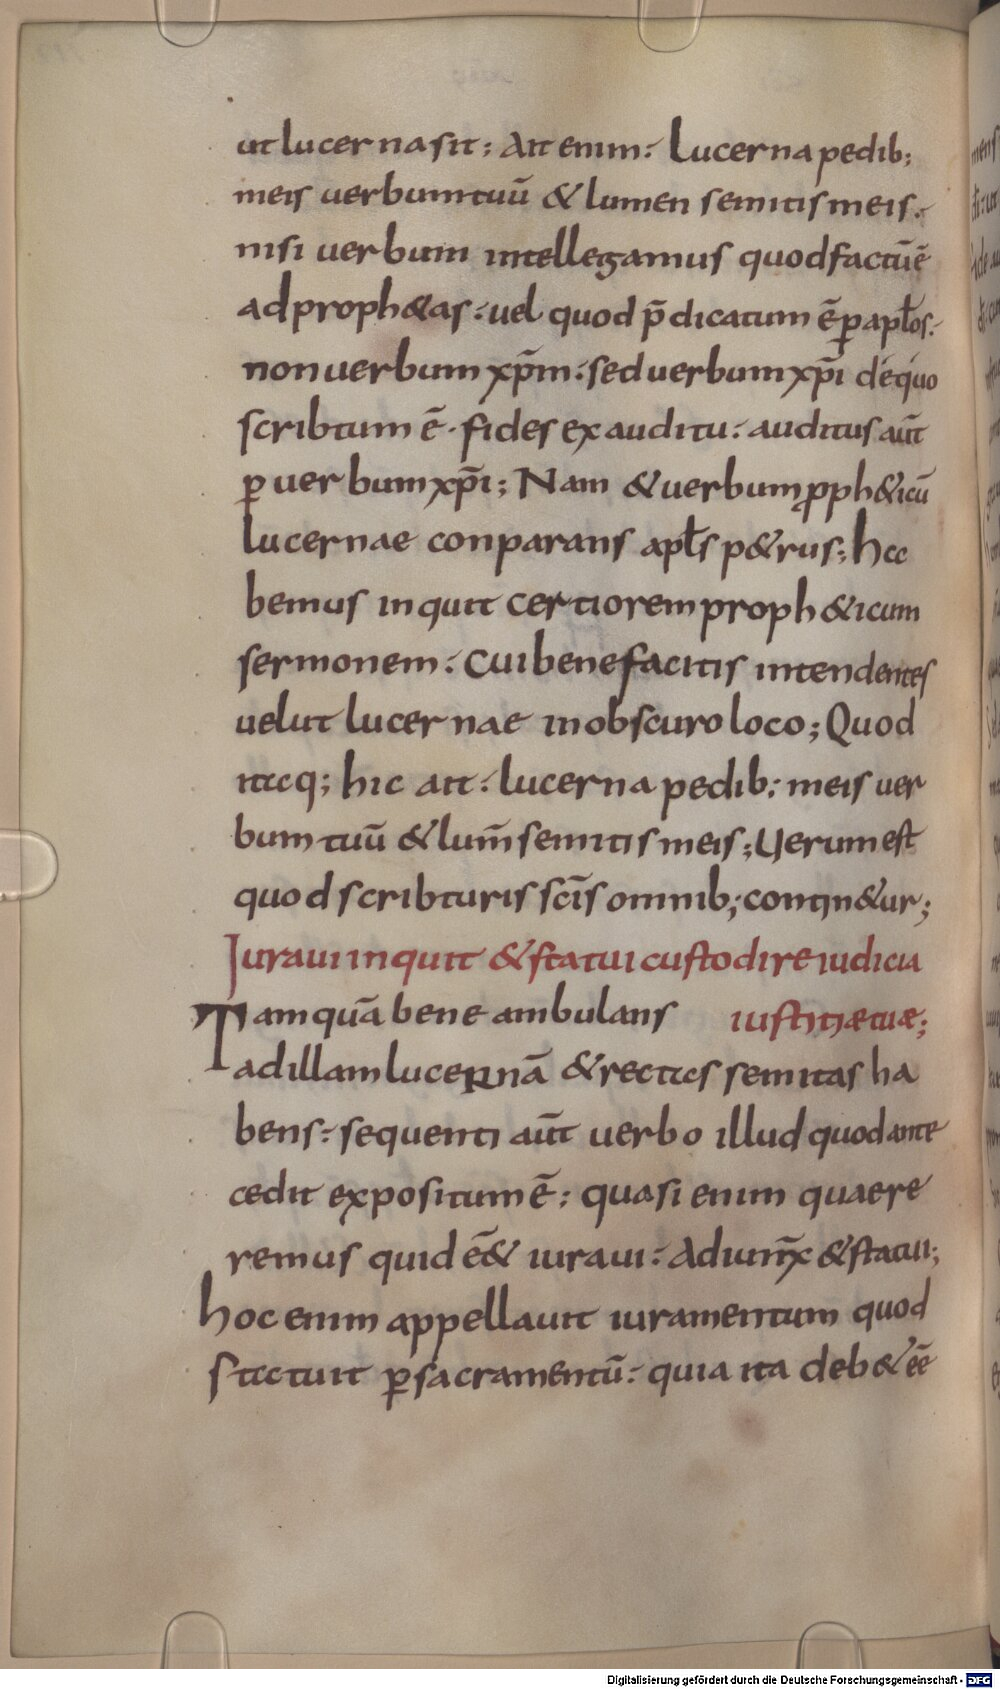 ut lucerna sit; Ait enim: Lucerna pedib;
meis uerbum tuū & lumen semitis meis.
nisi uerbum intellegamus quod factū ē
ad proph&as: uel quod p̄dicatum ē ꝑ apłos:
non uerbum xp̄m: sed uerbum xp̄i de quo
scribtum ē. fides ex auditu: auditus aūt
ꝑ uerbum xp̄i; Nam & uerbum ꝓph&icū
lucernae conparans apłs p&rus; ha
bemus inquit certiorem proph&icum
sermonem: Cui bene facitis intendentes
uelut lucernae in obscuro loco; Quod
itaq; hic ait: lucerna pedib; meis uer
bum tuū & lum̄ semitis meis; Uerum est
quod scribturis scīs omnib; contin&ur;
Iuraui inquit & statui custodire iudicia
Tamquā bene ambulans iustitiæ tuæ;
ad illam lucernā & rectas semitas ha
bens: sequenti aūt uerbo illud quod ante
cedit expositum ē: quasi enim quaere
remus quid ē & iuraui: Adiunx̄ & statui;
hoc enim appellauit iuramentum quod
statuit ꝑ sacramentū: quia ita deb& eē
Digitalisierung gefördert durch die Deutsche Forschungsgemeinschaft - DFG